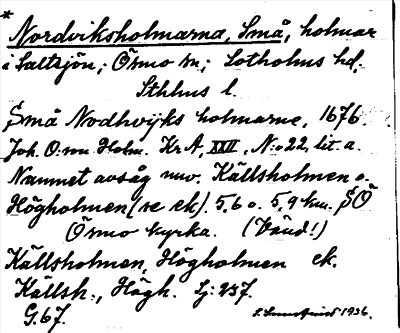 * Nordviksholmarna, Små, holmar
i Saltsjön; Ösmo sn; Sotholms hd,
Sthlms l.
Små Nodhwijks holmarne, 1676.
Joh. Holm. Kr A, XXII, N:o 22, lit. a.
Namnet avsåg nuv. Källsholmen o.
Högholmen (se ek). 5,6 o. 5,9 km. SÖ
Ösmo kyrka. (Vänd!)
Källsholmen, Högholmen ek.
Källsh., Högh. Lj: 257.
G.67.
1936.